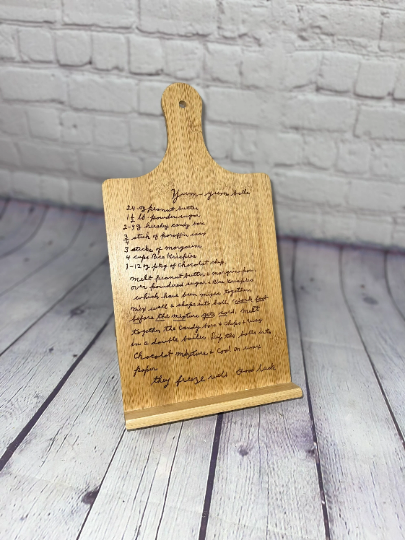 Yum-yum balls
24 oz peanut butter
1½ lb powdered sugar
2-9 oz hershey candy bar
½ stick of paraffin wax
3 sticks of margarine
4 cups Rice Krispies
1-12 oz pkg of chocolate chip
melt peanut butter & margarine
over powdered sugar & Rice Krispies
which have been mixed together
mix well & shape into balls
before the mixture gets cold. Melt
together the candy bars & chips & wax
in a double boiler. Dip the balls into
Chocolate mixture & Cool on wax
paper
they freeze well. Good luck